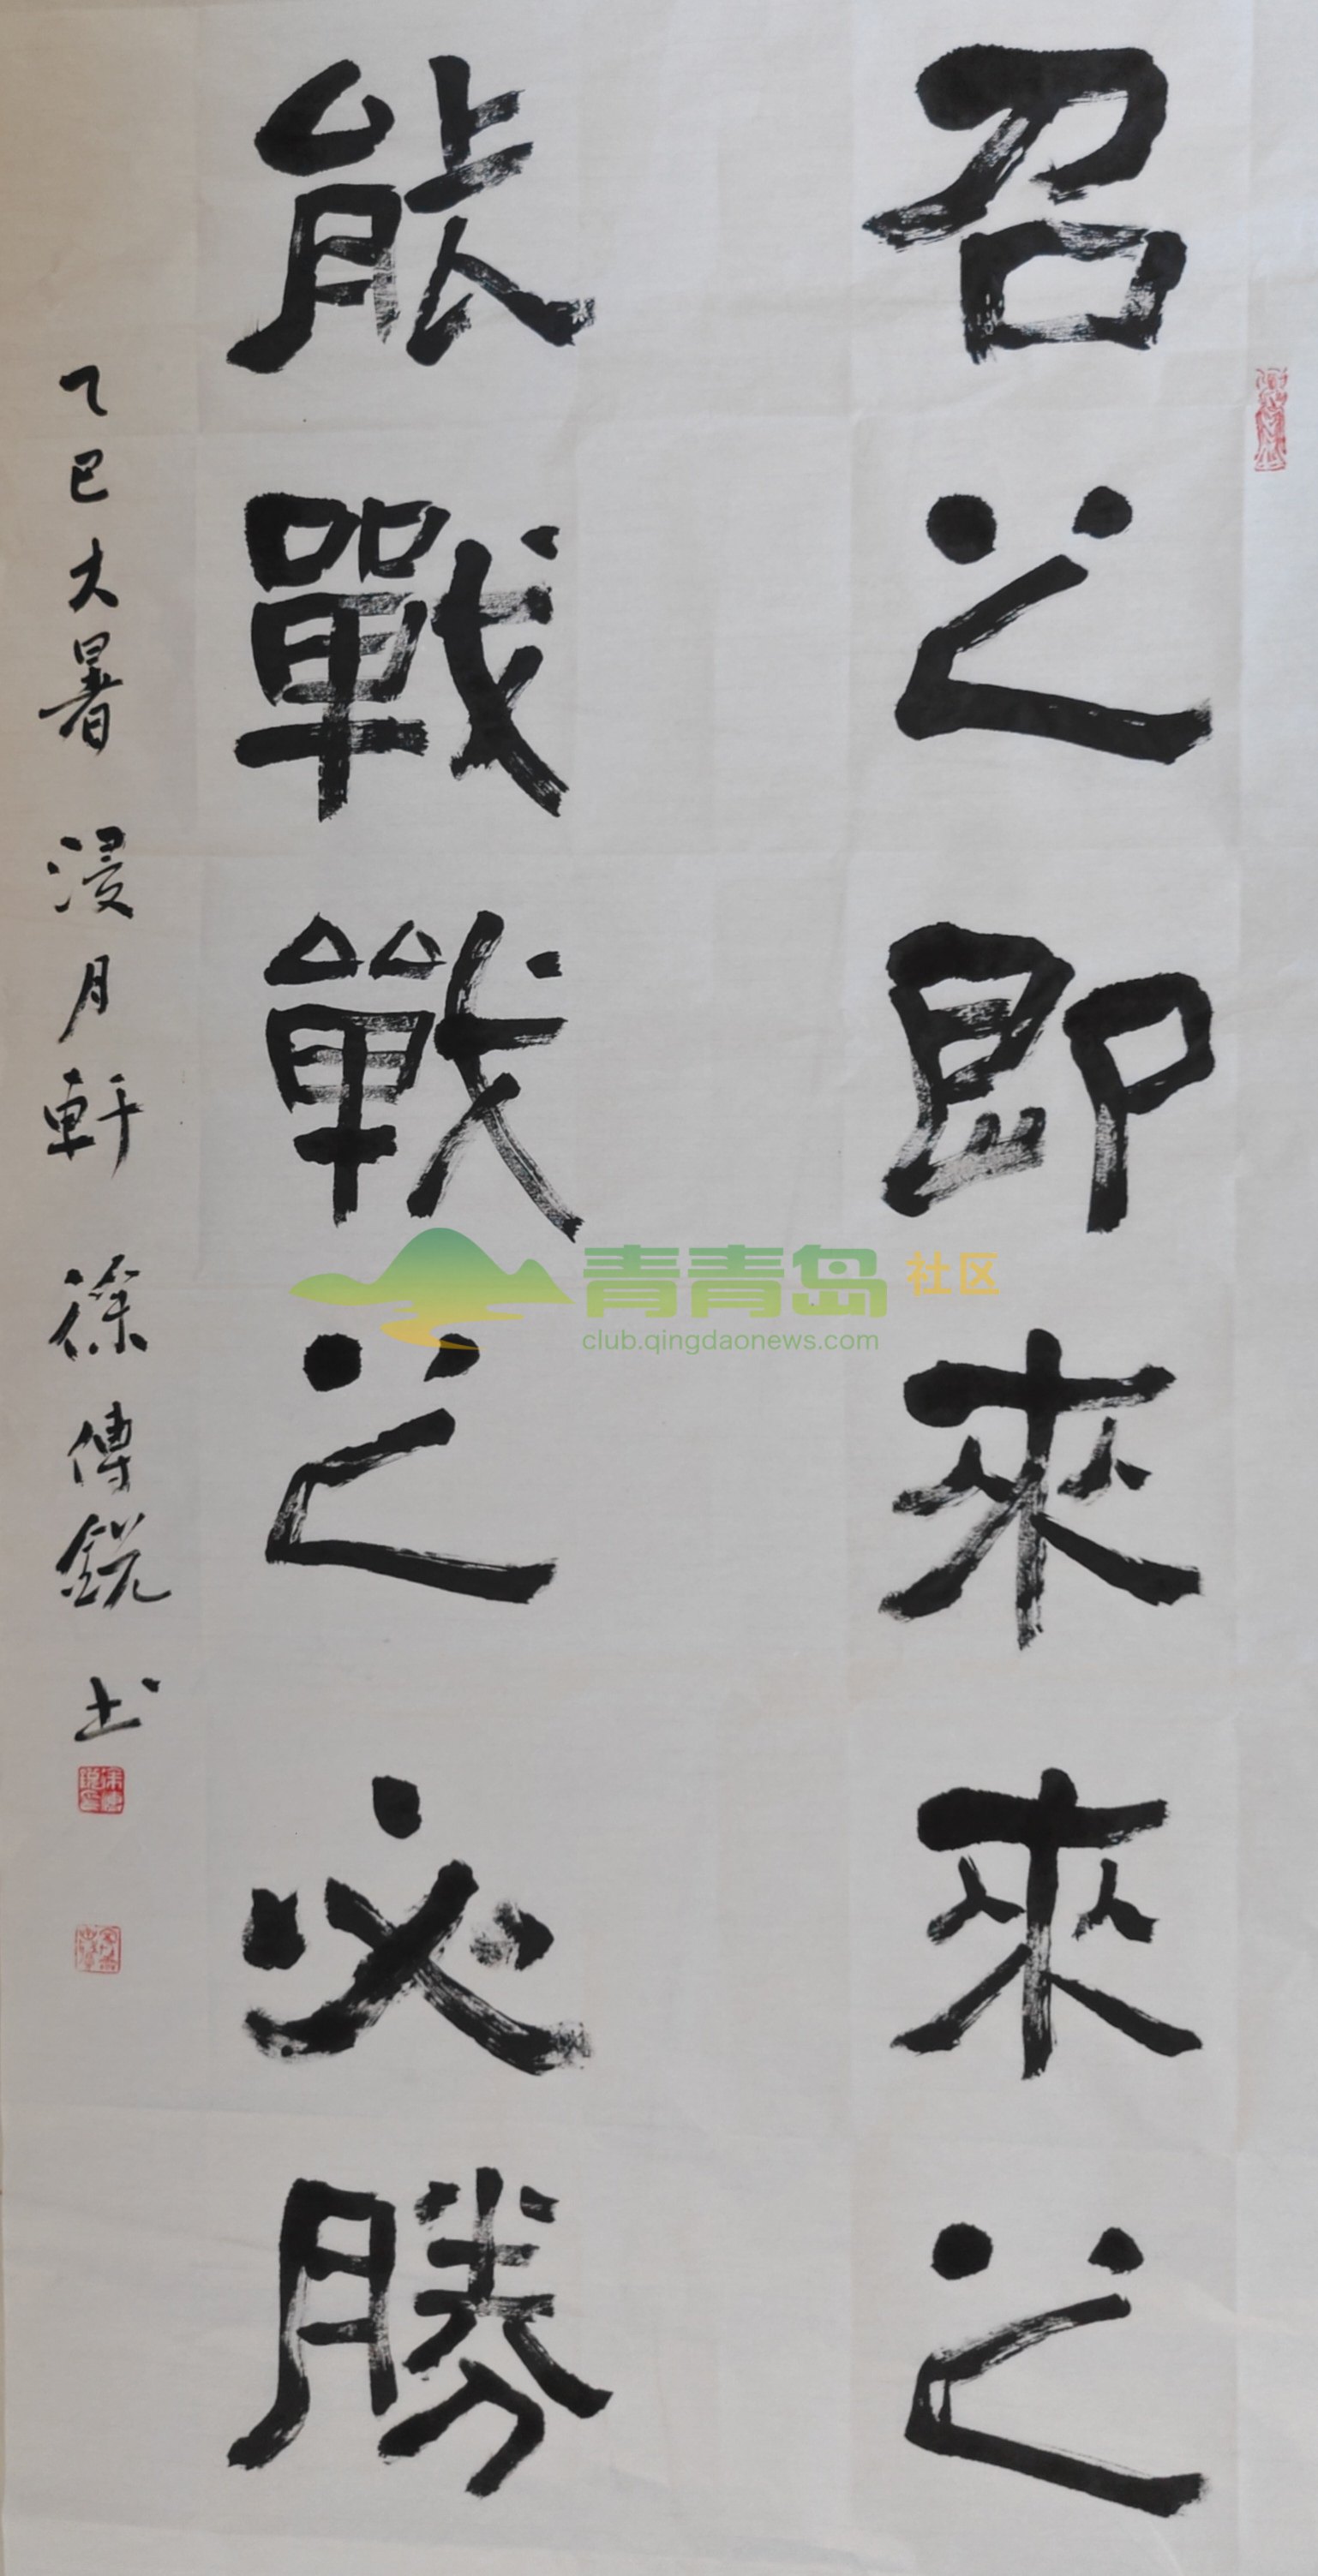 召之即來來之
能戰戰之必勝
乙巳大暑 浸月軒 徐傳銳 书
青青岛 社区
club.qingdaonews.com